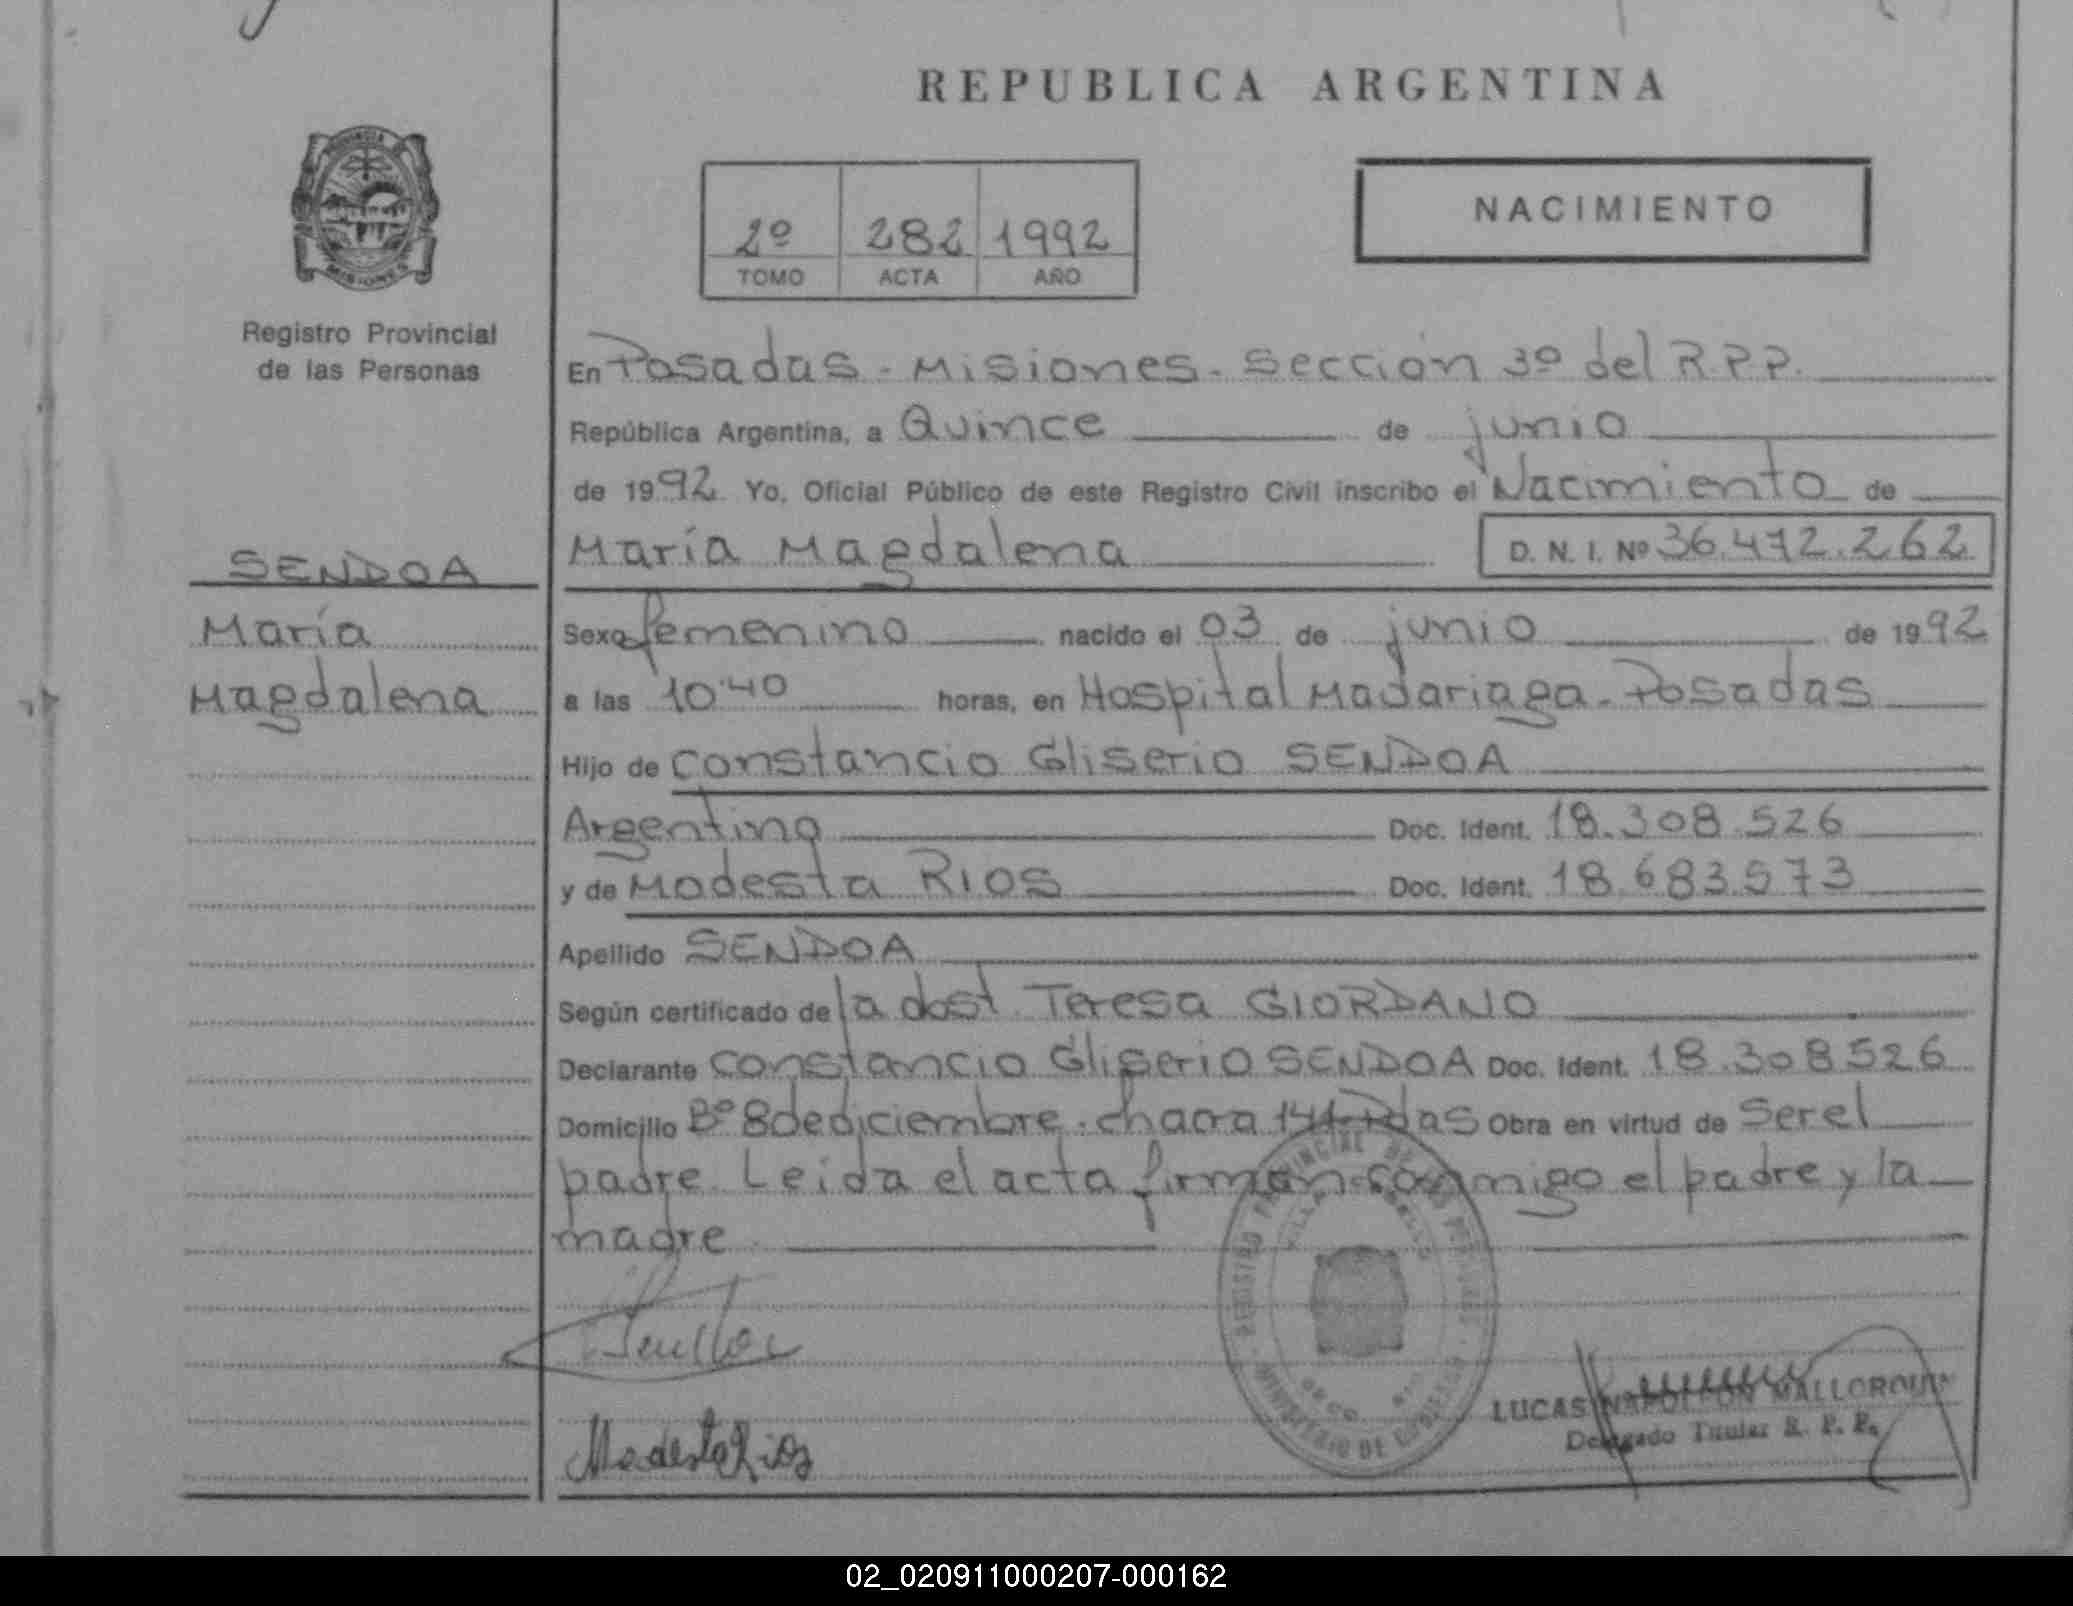 REPUBLICA ARGENTINA
PROVINCIA
MISIONES
Registro Provincial
de las Personas
2º 282 1992
TOMO ACTA AÑO
NACIMIENTO
En Posadas - Misiones - Sección 3º del R.P.P.
República Argentina, a Quince de junio
de 1992 Yo, Oficial Público de este Registro Civil inscribo el Nacimiento de
María Magdalena D. N. I. Nº 36.472.262
SENDOA
María
Magdalena
Sexo femenino nacido el 03 de junio de 1992
a las 10:40 horas, en Hospital Madariaga - Posadas
Hijo de Constancio Gliserio SENDOA
Argentino Doc. Ident. 18.308.526
y de Modesta RIOS Doc. Ident. 18.683.573
Apellido SENDOA
Según certificado de la obst. Teresa GIORDANO
Declarante Constancio Gliserio SENDOA Doc. Ident. 18.308526
Domicilio Bº 8 de diciembre - chacra 141 - Pdas Obra en virtud de Ser el
padre. Leida el acta firman conmigo el padre y la
madre
REGISTRO PROVINCIAL DE LAS PERSONAS
MINISTERIO DE GOBIERNO
Modesta Rios
LUCAS NAPOLEON MALLORQUIN
Delegado Titular R. P. P.
02_020911000207-000162